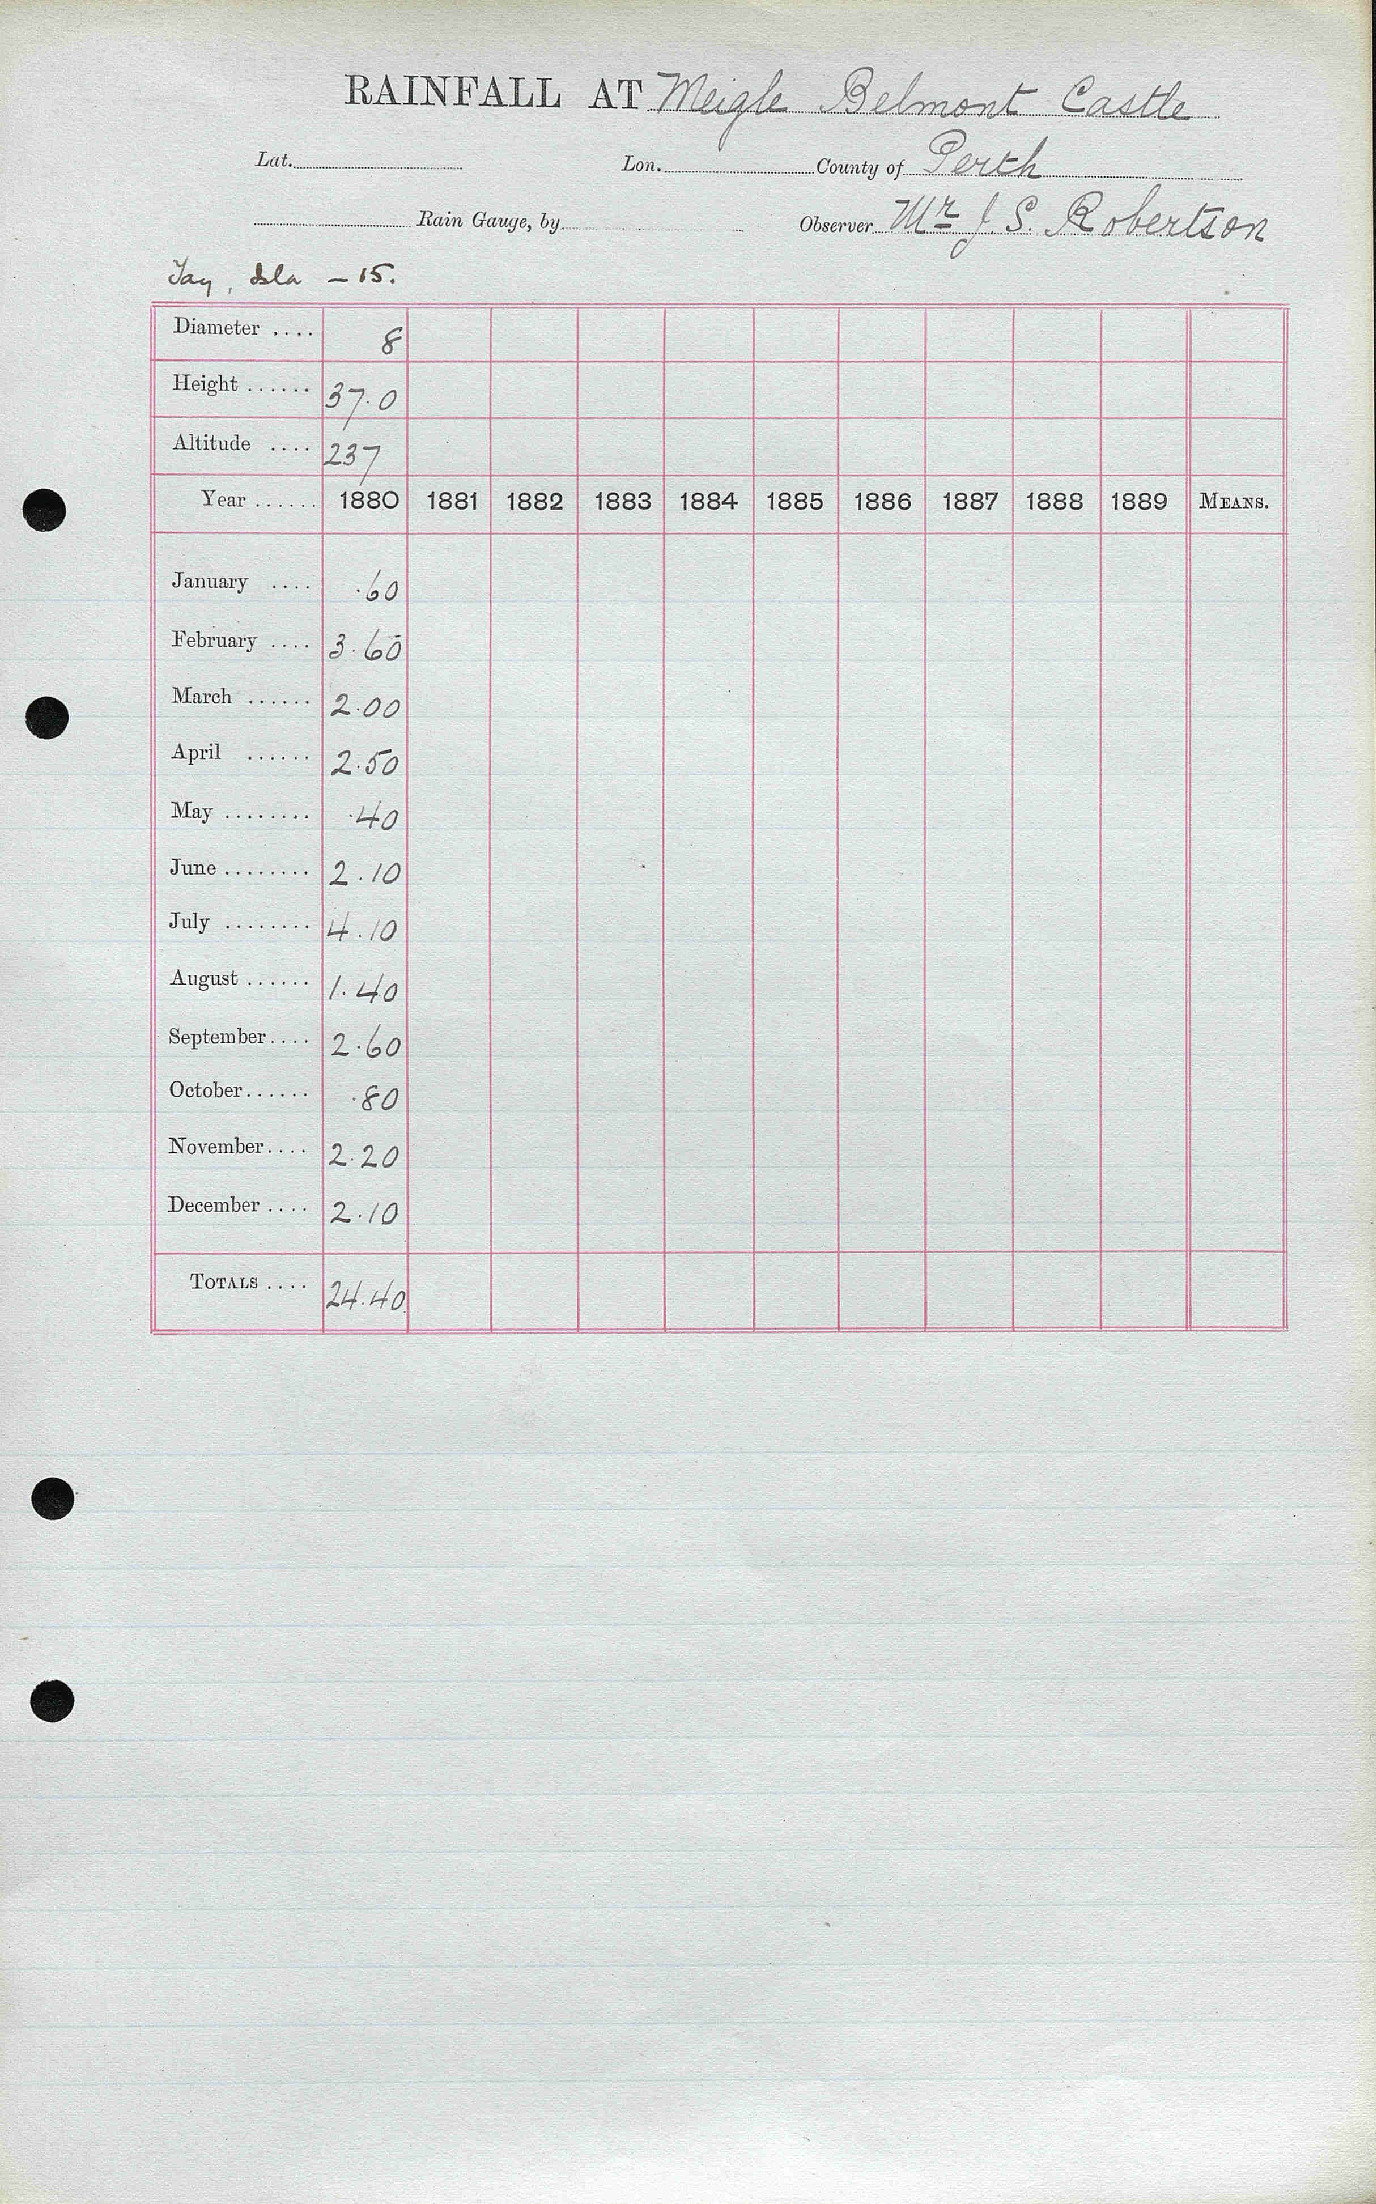 RAINFALL AT Meigle Belmont Castle
Lat. Lon. County of Perth
Rain Gauge, by Observer Mr J S. Robertson
Tay, Isla - 15.
Diameter .... 8
Height ...... 37.0
Altitude .... 237
Year ...... 1880 1881 1882 1883 1884 1885 1886 1887 1888 1889 MEANS.
January .... .60
February .... 3.60
March ...... 2.00
April ...... 2.50
May ........ .40
June ........ 2.10
July ........ 4.10
August ...... 1.40
September .... 2.60
October ...... .80
November .... 2.20
December .... 2.10
TOTALS .... 24.40